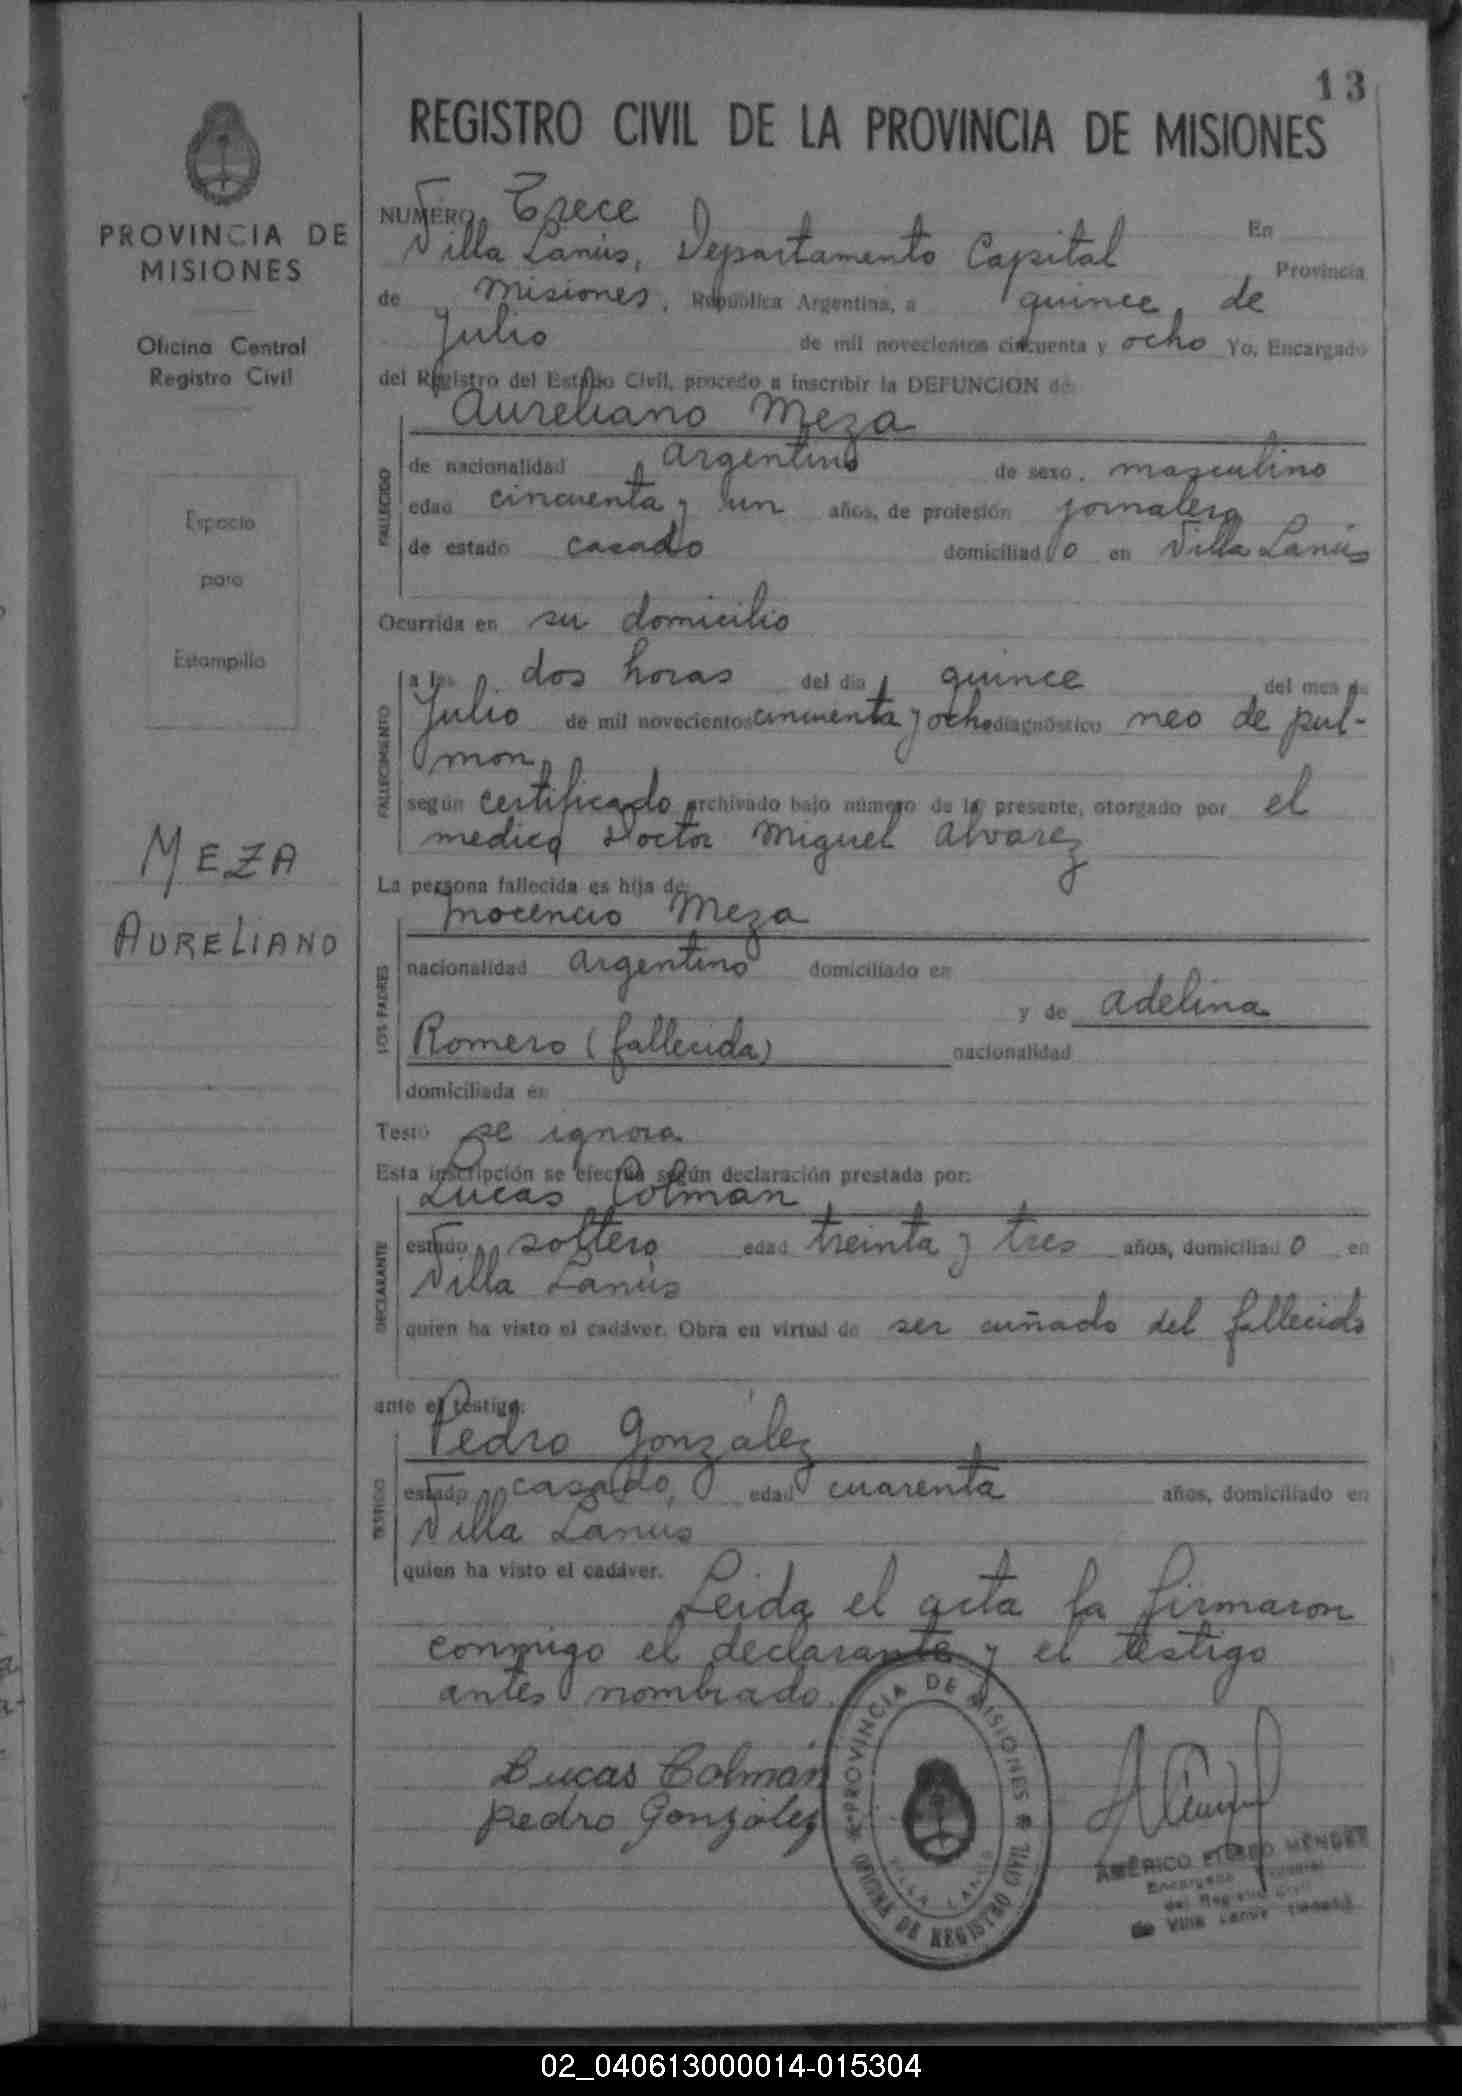 13
REGISTRO CIVIL DE LA PROVINCIA DE MISIONES
PROVINCIA DE
MISIONES
Oficina Central
Registro Civil
Espacio
para
Estampilla
MEZA
AURELIANO
NUMERO Trece En
Villa Lanús, Departamento Capital Provincia
de Misiones, República Argentina, a quince de
Julio de mil novecientos cincuenta y ocho Yo, Encargado
del Registro del Estado Civil, procedo a inscribir la DEFUNCION de:
Aureliano Meza
FALLECIDO
de nacionalidad argentino de sexo masculino
edad cincuenta y un años, de profesión jornalero
de estado casado domiciliado en Villa Lanús
Ocurrida en su domicilio
FALLECIMIENTO
a las dos horas del día quince del mes de
Julio de mil novecientos cincuenta y ocho diagnóstico neo de pul-
mon
según certificado archivado bajo número de la presente, otorgado por el
medico Doctor Miguel Alvarez
La persona fallecida es hija de:
Inocencio Meza
LOS PADRES
nacionalidad argentino domiciliado en
y de Adelina
Romero (fallecida) nacionalidad
domiciliada en
Testó se ignora
Esta inscripción se efectúa según declaración prestada por:
Lucas Colman
DECLARANTE
estado soltero edad treinta y tres años, domiciliado en
Villa Lanús
quien ha visto el cadáver. Obra en virtud de ser cuñado del fallecido
ante el testigo:
Pedro González
TESTIGO
estado casado, edad cuarenta años, domiciliado en
Villa Lanús
quien ha visto el cadáver. Leida el acta la firmaron
conmigo el declarante y el testigo
antes nombrado.
Lucas Colmán
Pedro González
PROVINCIA DE MISIONES
OFICINA DE REGISTRO CIVIL
VILLA LANUS
AMÉRICO ELISEO MENDEZ
Encargado
del Registro Civil
de Villa Lanús
02_040613000014-015304